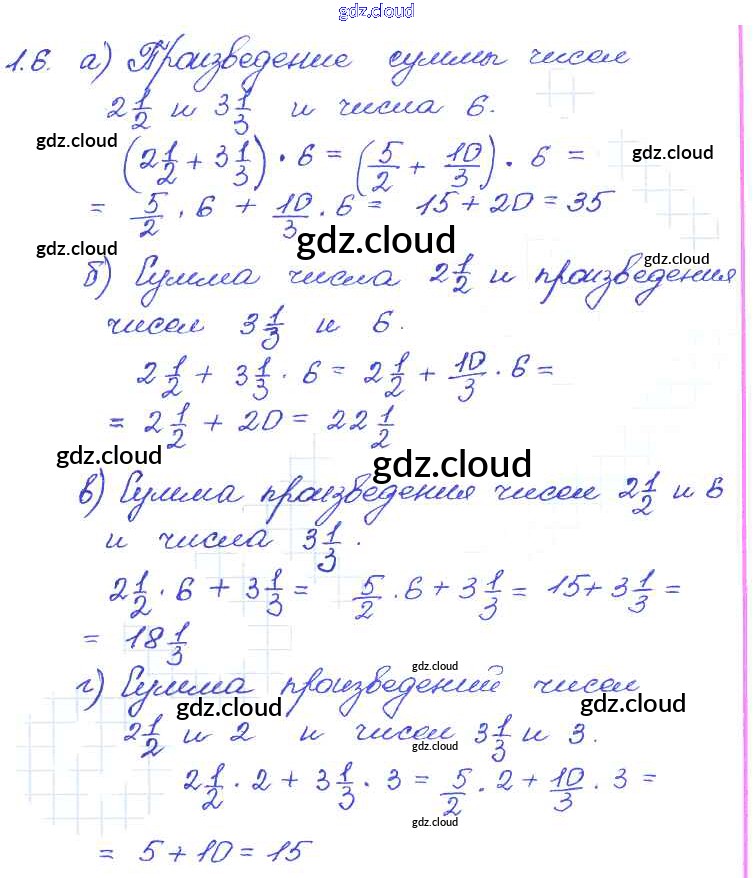 gdz.cloud
1.6. а) Произведение суммы чисел
2 1/2 и 3 1/3 и числа 6.
gdz.cloud gdz.cloud
(2 1/2 + 3 1/3) · 6 = (5/2 + 10/3) · 6 =
= 5/2 · 6 + 10/3 · 6 = 15 + 20 = 35
gdz.cloud gdz.cloud gdz.cloud
б) Сумма числа 2 1/2 и произведения
чисел 3 1/3 и 6.
2 1/2 + 3 1/3 · 6 = 2 1/2 + 10/3 · 6 =
= 2 1/2 + 20 = 22 1/2
gdz.cloud gdz.cloud
в) Сумма произведения чисел 2 1/2 и 6
и числа 3 1/3.
2 1/2 · 6 + 3 1/3 = 5/2 · 6 + 3 1/3 = 15 + 3 1/3 =
= 18 1/3
gdz.cloud
г) Сумма произведений чисел
gdz.cloud gdz.cloud
2 1/2 и 2 и чисел 3 1/3 и 3.
gdz.cloud
2 1/2 · 2 + 3 1/3 · 3 = 5/2 · 2 + 10/3 · 3 =
gdz.cloud
= 5 + 10 = 15